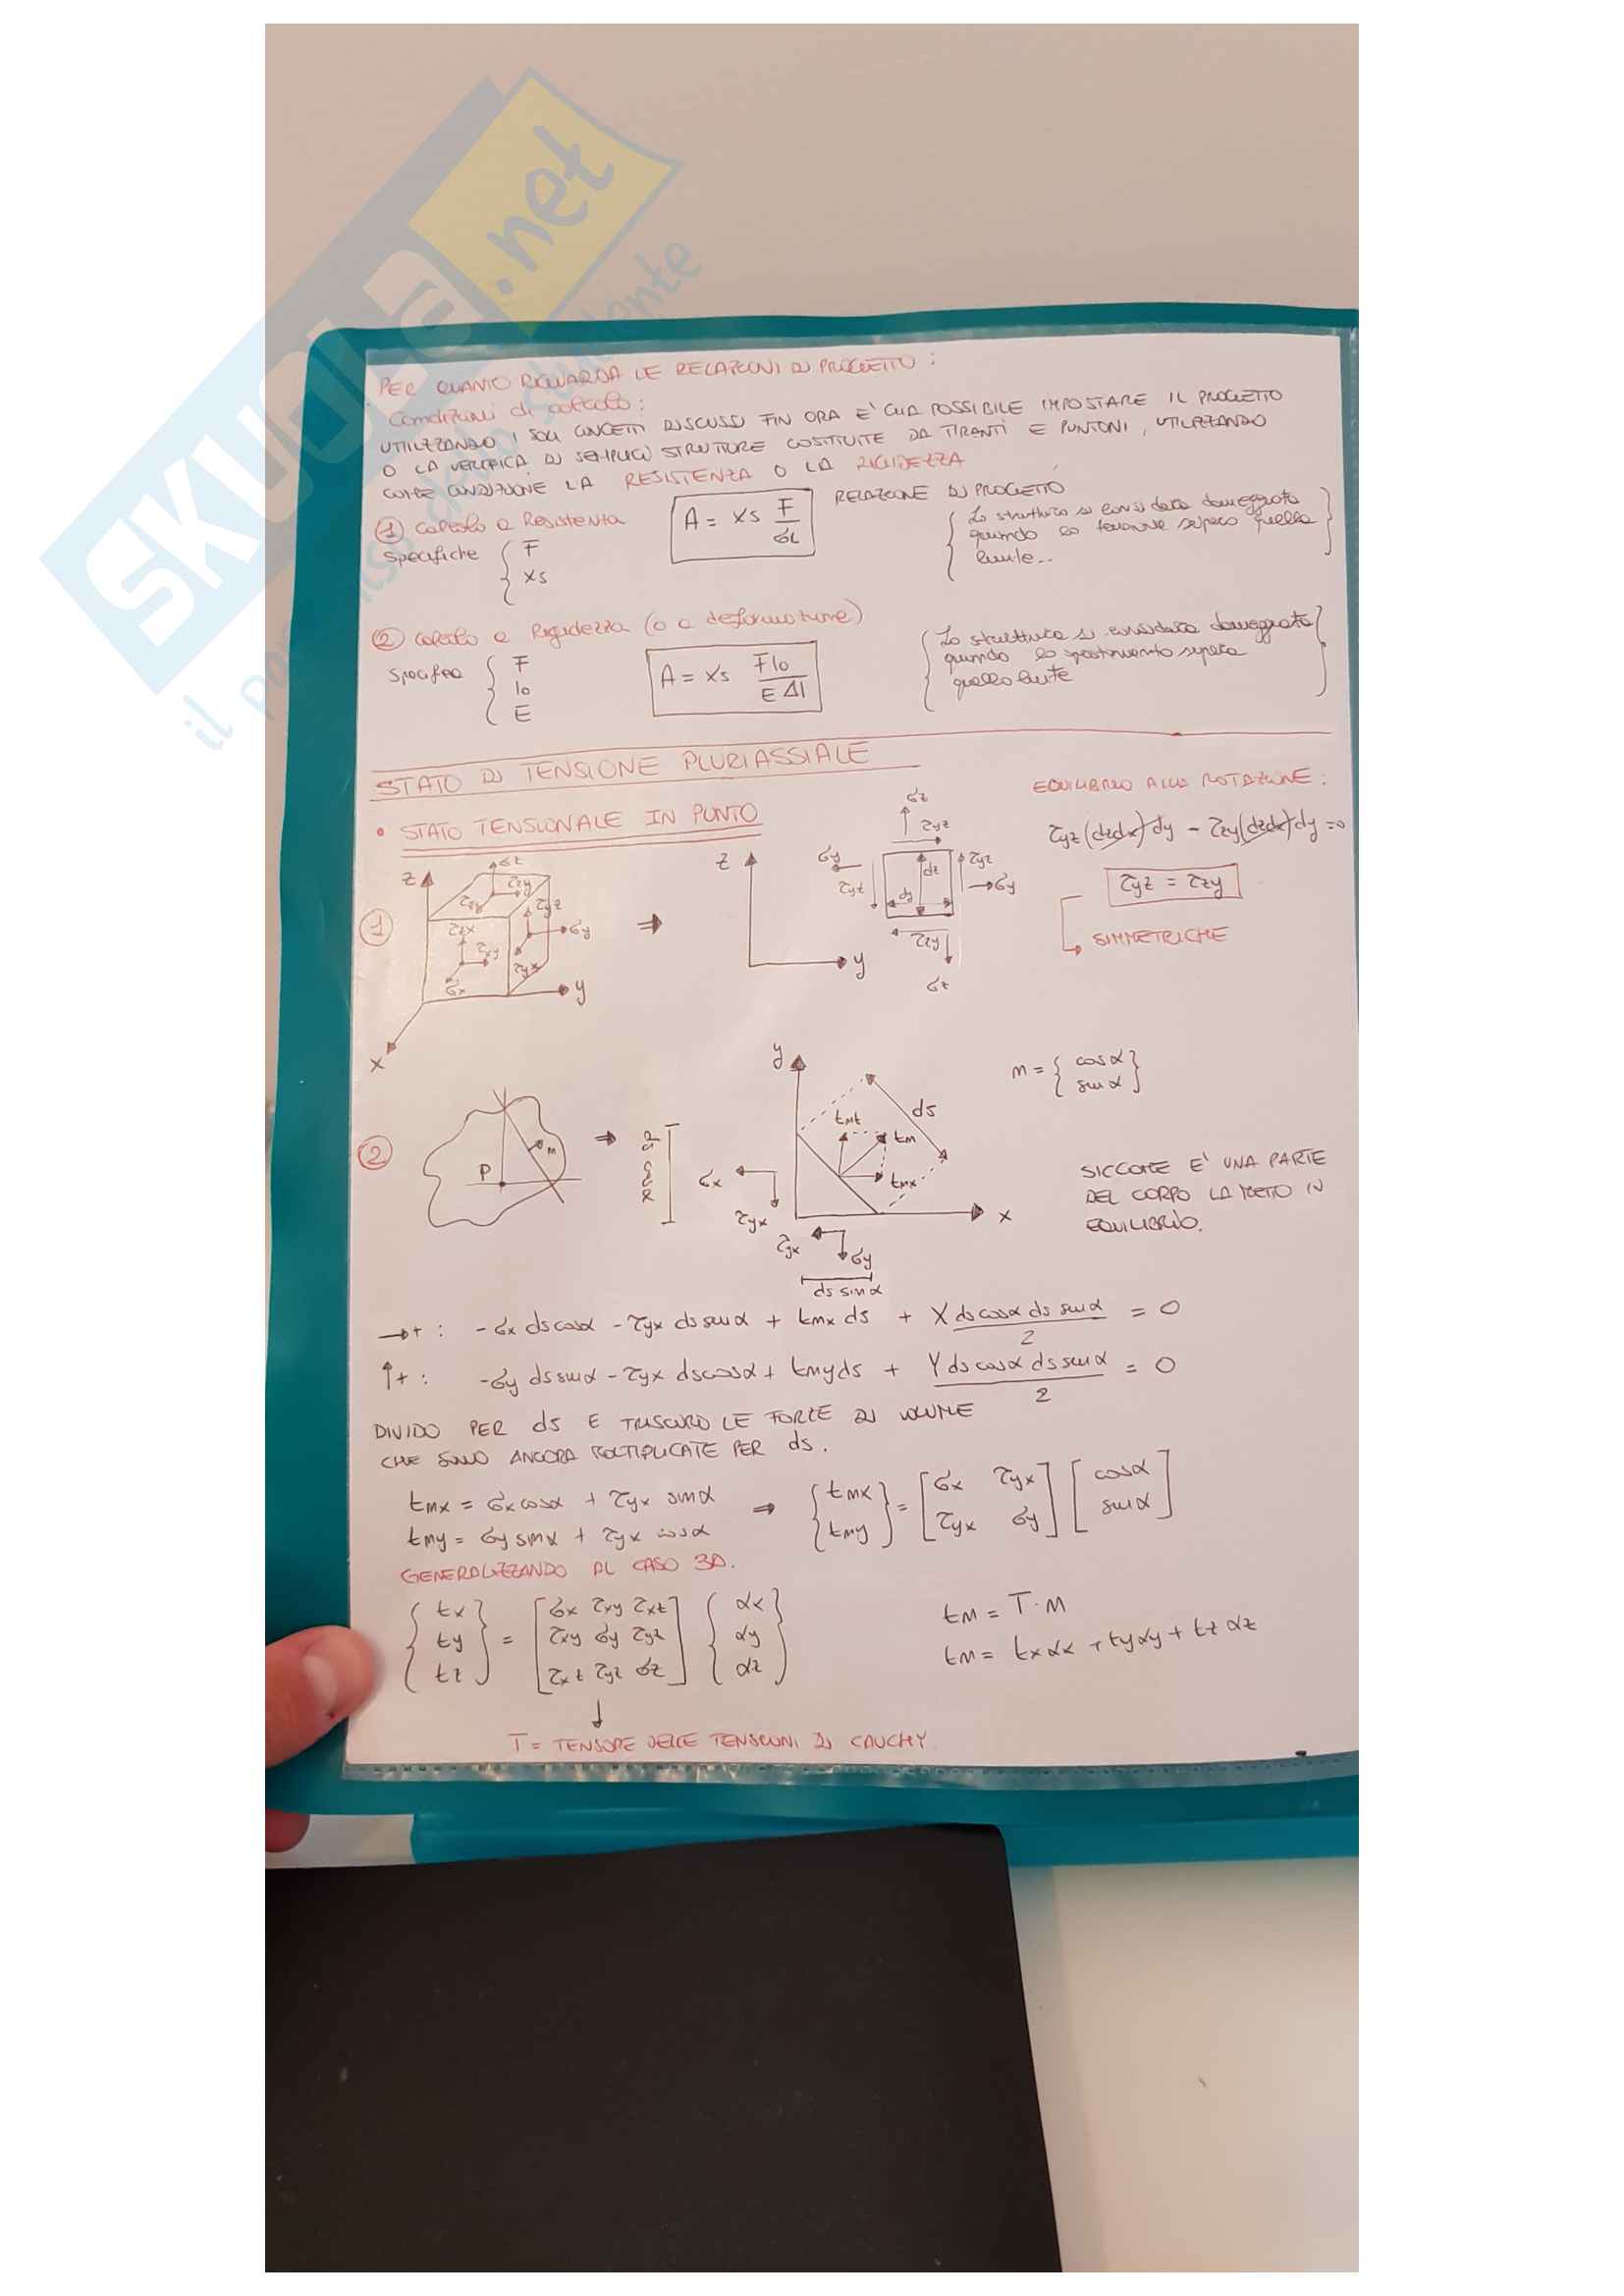 SKUOLA.net
il paradiso dello studente
PER QUANTO RIGUARDA LE RELAZIONI DI PROGETTO :
Condizioni di calcolo :
UTILIZZANDO I SOLI CONCETTI DISCUSSI FIN ORA E' GIA POSSIBILE IMPOSTARE IL PROGETTO
O LA VERIFICA DI SEMPLICI STRUTTURE COSTITUITE DA TIRANTI E PUNTONI, UTILIZZANDO
COME CONDIZIONE LA RESISTENZA O LA RIGIDEZZA
① Calcolo a Resistenza
A = Xs F/σL
RELAZIONE DI PROGETTO
Specifiche { F
Xs
{ La struttura si considera danneggiata
quando la tensione supera quella
limite.. }
② Calcolo a Rigidezza (o a deformazione)
Specifica { F
l0
E
A = Xs Fl0/EΔl
{ La struttura si considera danneggiata
quando lo spostamento supera
quello limite }
STATO DI TENSIONE PLURIASSIALE
• STATO TENSIONALE IN PUNTO
EQUILIBRIO ALLA ROTAZIONE :
τyz (dzdx) dy - τzy (dzdx) dy = 0
τyz = τzy
SIMMETRICHE
①
z σz τzy τzx τyz σy τxy τyx σx y x
⇒
z y
σz τyz σy τyz dz τyz σy dy τzy σz
②
P n
⇒
ds cosα
y
ds
tnt tn tnx
σx τyx
x
τyx σy
ds sinα
n = { cosα
sinα }
SICCOME E' UNA PARTE
DEL CORPO LA METTO IN
EQUILIBRIO.
→+ : - σx ds cosα - τyx ds sinα + tnx ds + X ds cosα ds sinα / 2 = 0
↑+ : - σy ds sinα - τyx ds cosα + tny ds + Y ds cosα ds sinα / 2 = 0
DIVIDO PER ds E TRASCURO LE FORZE DI VOLUME
CHE SONO ANCORA MOLTIPLICATE PER ds.
tnx = σx cosα + τyx sinα
tny = σy sinα + τyx cosα
⇒ { tnx
tny } = [ σx τyx
τyx σy ] [ cosα
sinα ]
GENERALIZZANDO AL CASO 3D.
{ tx
ty
tz } = [ σx τxy τxz
τxy σy τyz
τxz τyz σz ] { αx
αy
αz }
tn = T · n
tn = txαx + tyαy + tzαz
↓
T = TENSORE DELLE TENSIONI DI CAUCHY.